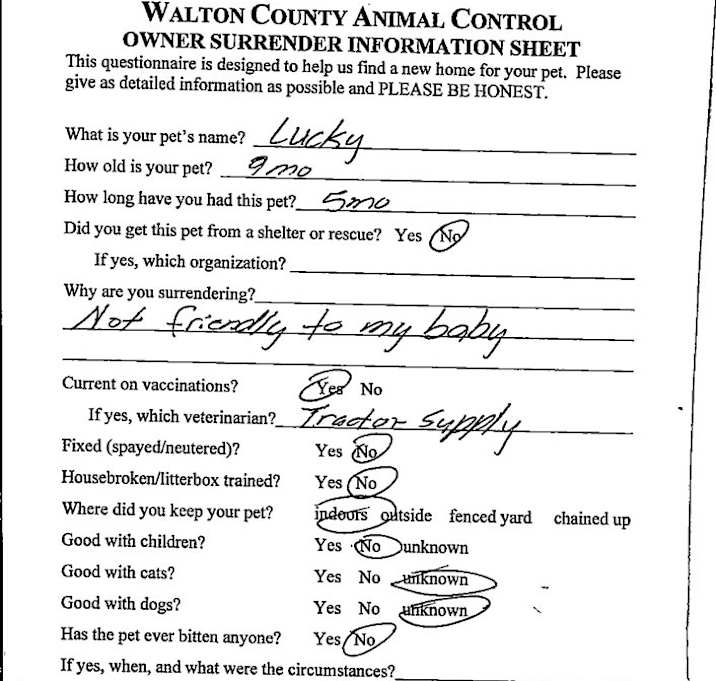 WALTON COUNTY ANIMAL CONTROL
OWNER SURRENDER INFORMATION SHEET
This questionnaire is designed to help us find a new home for your pet. Please
give as detailed information as possible and PLEASE BE HONEST.
What is your pet's name? Lucky
How old is your pet? 9mo
How long have you had this pet? 5mo
Did you get this pet from a shelter or rescue? Yes No
If yes, which organization?
Why are you surrendering?
Not friendly to my baby
Current on vaccinations? Yes No
If yes, which veterinarian? Tractor Supply
Fixed (spayed/neutered)? Yes No
Housebroken/litterbox trained? Yes No
Where did you keep your pet? indoors outside fenced yard chained up
Good with children? Yes No unknown
Good with cats? Yes No unknown
Good with dogs? Yes No unknown
Has the pet ever bitten anyone? Yes No
If yes, when, and what were the circumstances?